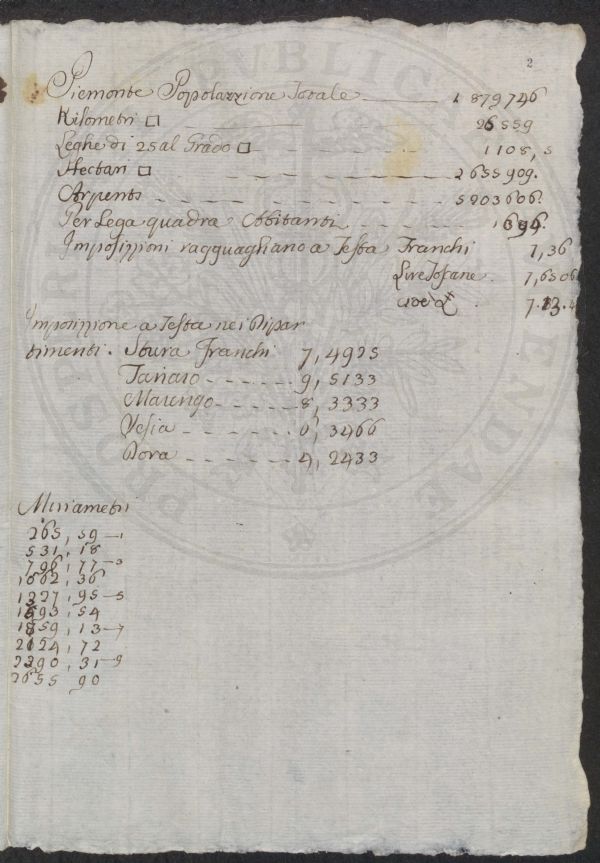 2
Piemonte Popolazzione Totale 1 879746
Kilometri □ 26 559
Leghe di 25 al Grado □ 1108, 5
Hectari □ 2655909.
Arpents 5203606.
Per Lega quadra Abitanti 1696.
Imposizzioni ragguagliano a Testa Franchi 7,36
Lire Toscane. 7,6506
cioè 7.13.4
Imposizzione a Testa nei Dipar
timenti. Stura Franchi 7, 4925
Tanaro 9, 5133
Marengo 8, 3333
Sesia 6, 3466
Dora 4, 2433
Miriametri
265, 59 - 1
531, 18
796, 77 - 3
1062, 36
1327, 95 - 5
1593, 54
1859, 13 - 7
2124, 72
2390, 31 - 9
2655 90